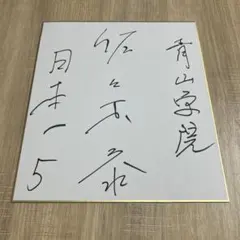 青山学院
佐々木泰
日本一 5